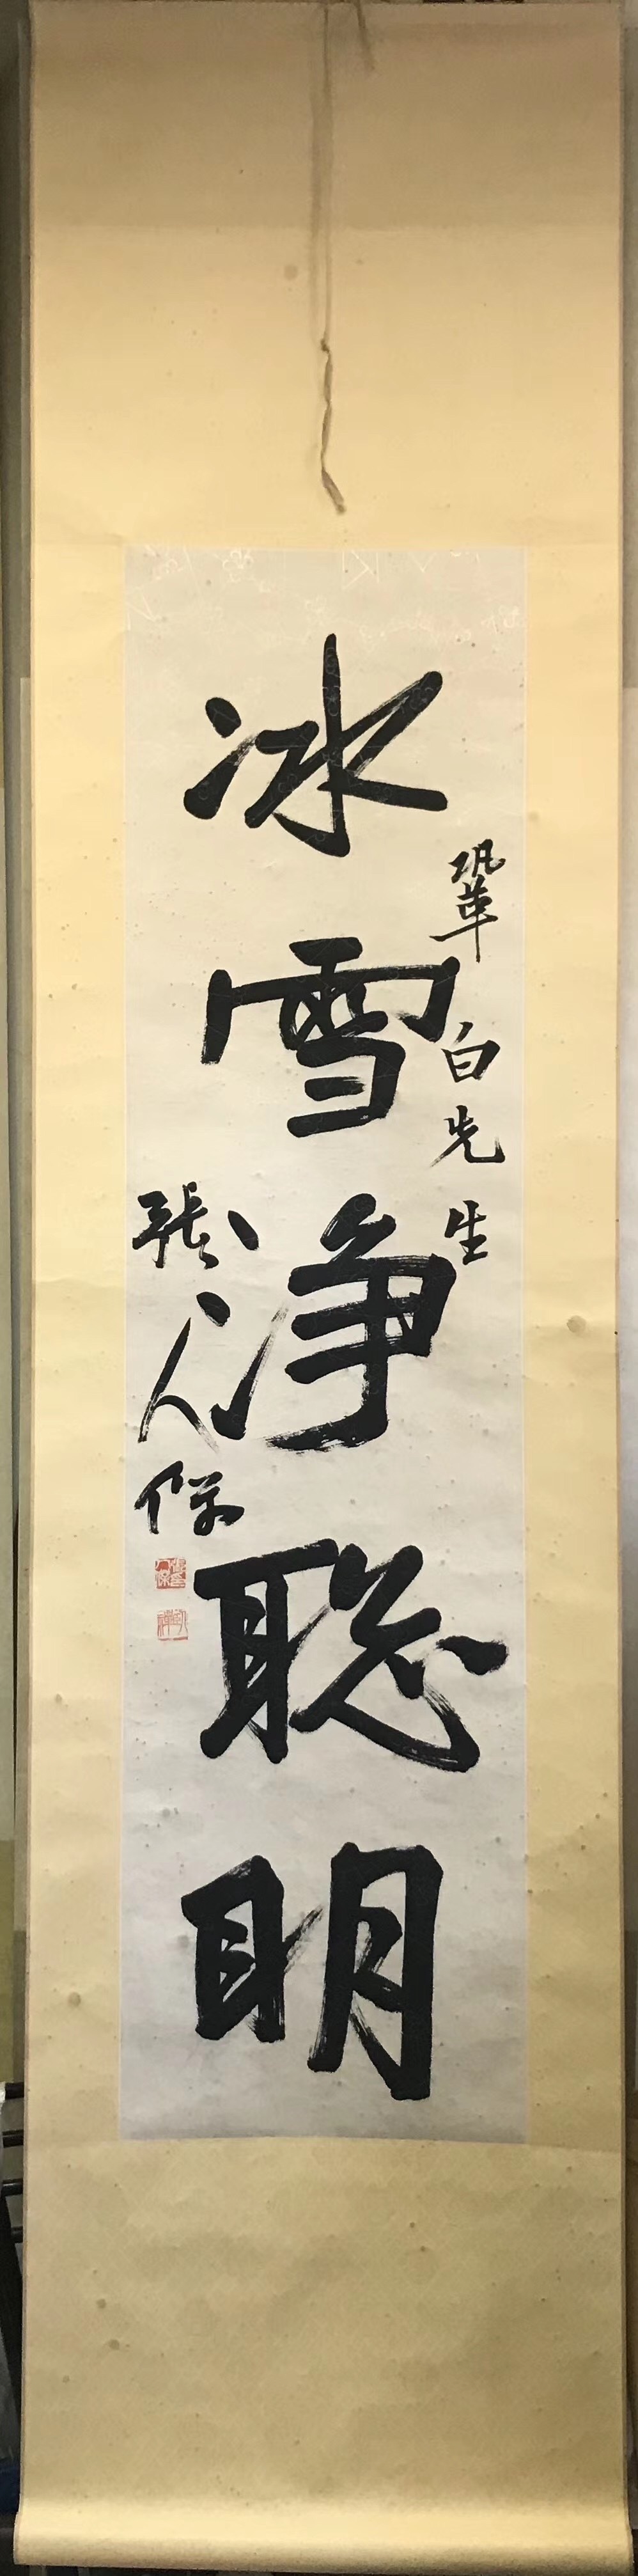 鞏白先生
冰雪净聪明
張人傑